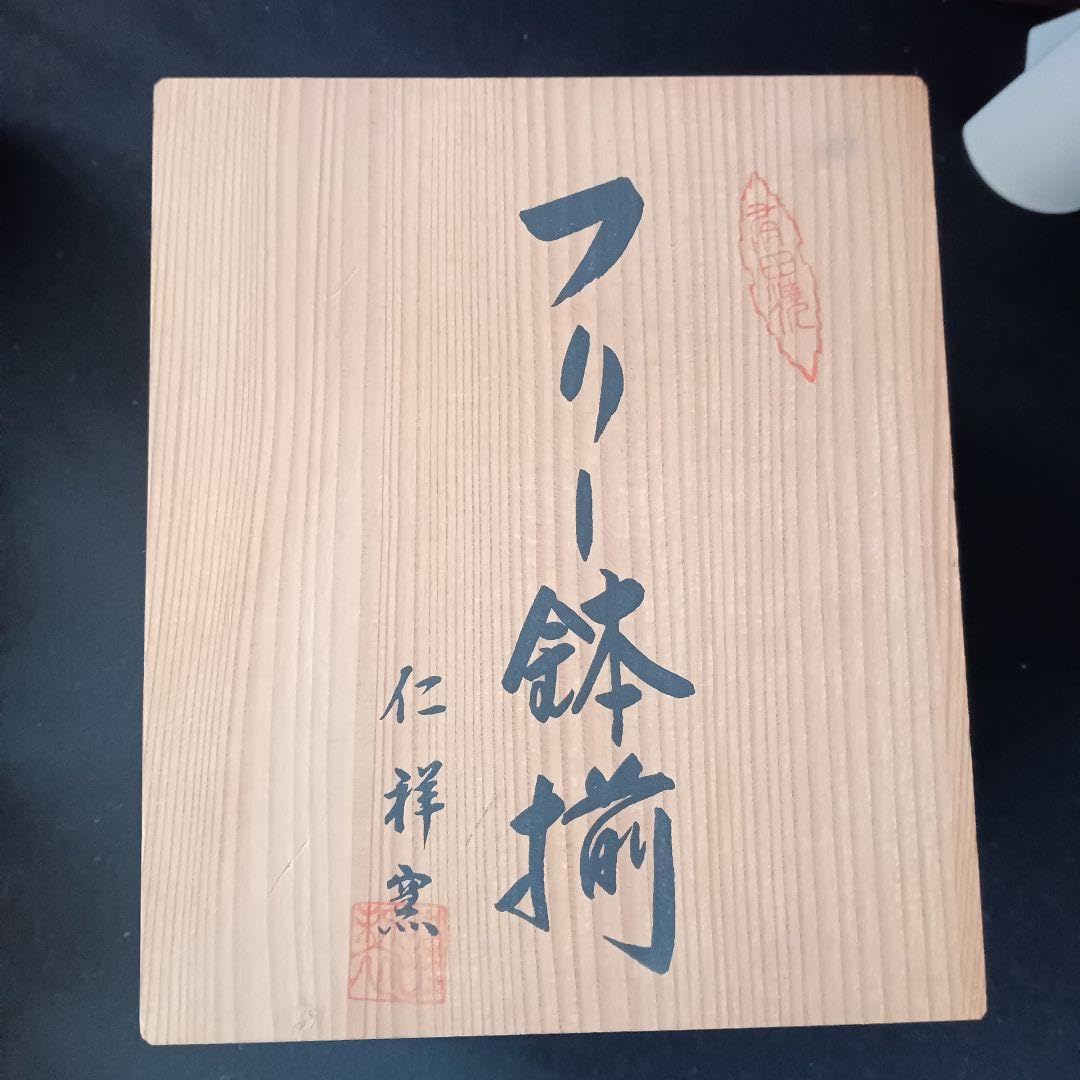 有田焼
フリー鉢揃
仁祥窯